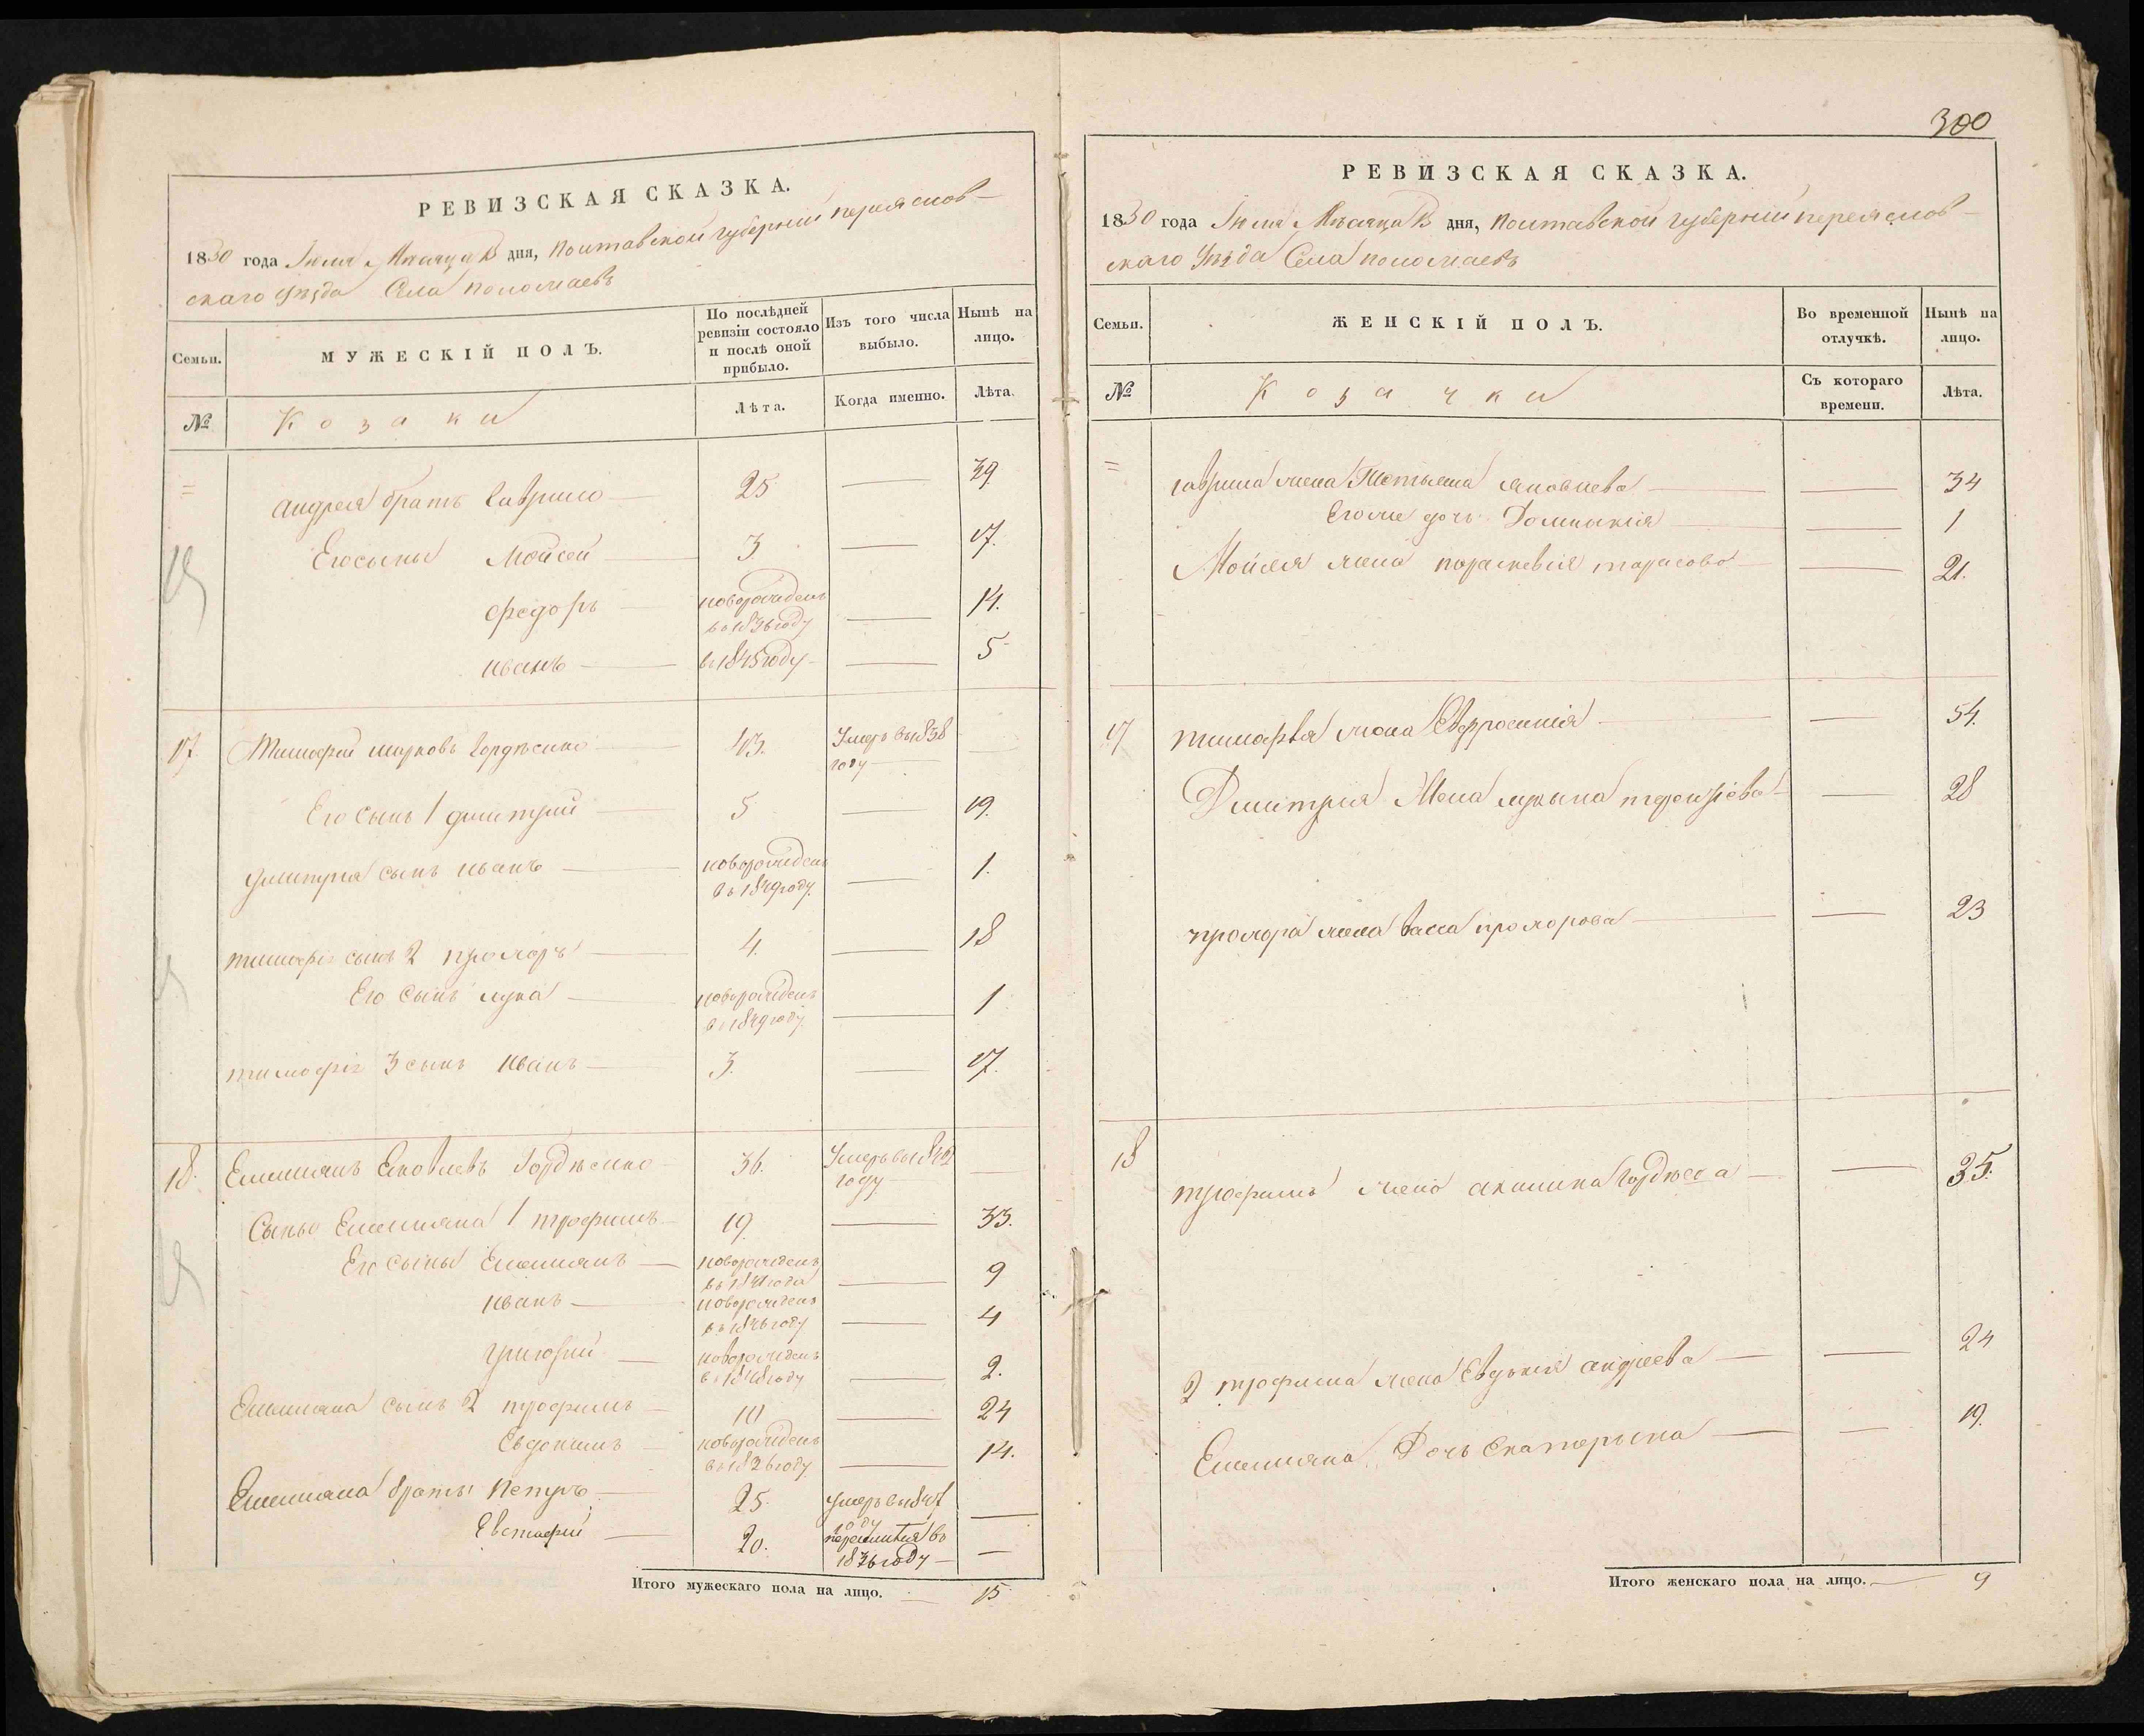 РЕВИЗСКАЯ СКАЗКА.
1850 года Іюля Мѣсяца дня, Полтавской губерніи переяслов-
скаго уѣзда Села пономаевъ
Семьи.
МУЖЕСКІЙ ПОЛЪ.
По послѣдней ревизіи состояло и послѣ оной прибыло.
Изъ того числа выбыло.
Нынѣ на лицо.
№
Козаки
Лѣта.
Когда именно.
Лѣта.
=
андрея братъ Гаврило — 25 — 39
Его сыны Мойсей — 3 — 17.
Федоръ — новорожденъ в 1836 году — 14.
иванъ — в 1845 году — 5
17. Тимофей марковъ Гордѣенко — 43. Умеръ въ 1838 году —
Его сынъ 1 дмитрий — 5 — 19.
дмитрия сынъ иванъ — новорожденъ въ 1849 году. — 1.
тимофія сынъ 2 прохоръ — 4. — 18
Его сынъ лука — новорожденъ в 1849 году — 1
тимофія 3 сынъ иванъ — 3. — 17.
18. Емелиянъ Яковлевъ Гордѣенко — 36. Умеръ въ 1842 году —
Сыны Емелияна 1 трофимъ — 19. — 33.
Его сыны Емелиянъ — новорожденъ въ 1841 года — 9
иванъ — новорожденъ въ 1846 году — 4
григорий — новорожденъ в 1848 году — 2.
Емелияна сынъ 2 трофимъ — 10 — 24
Евдокимъ — новорожденъ в 1836 году — 14.
Емелияна братья Петръ — 25. умеръ въ 1847 году —
Евстафий — 20. в 1836 году — —
Итого мужескаго пола на лицо. — 15
300
РЕВИЗСКАЯ СКАЗКА.
1850 года Іюля Мѣсяца дня, Полтавской губерніи переяслов-
скаго Уѣзда Села пономаевъ
Семьи.
ЖЕНСКІЙ ПОЛЪ.
Во временной отлучкѣ.
Нынѣ на лицо.
№
Козачки
Съ котораго времени.
Лѣта.
=
гаврила жена Татьяна яковлева — — 34
Его же дочь Домникия — — 1
Мойсея жена параскевия тарасова — — 21.
17 тимофея жена Евфросиния — — 54.
Дмитрия Жена лукына — 28
прохора жена васса прохорова — — 23
18 трофима жена акилина — — 35.
2 трофима жена Евдокия андреева — — 24
Емелияна Дочь Екатерына — — 19.
Итого женскаго пола на лицо. — 9